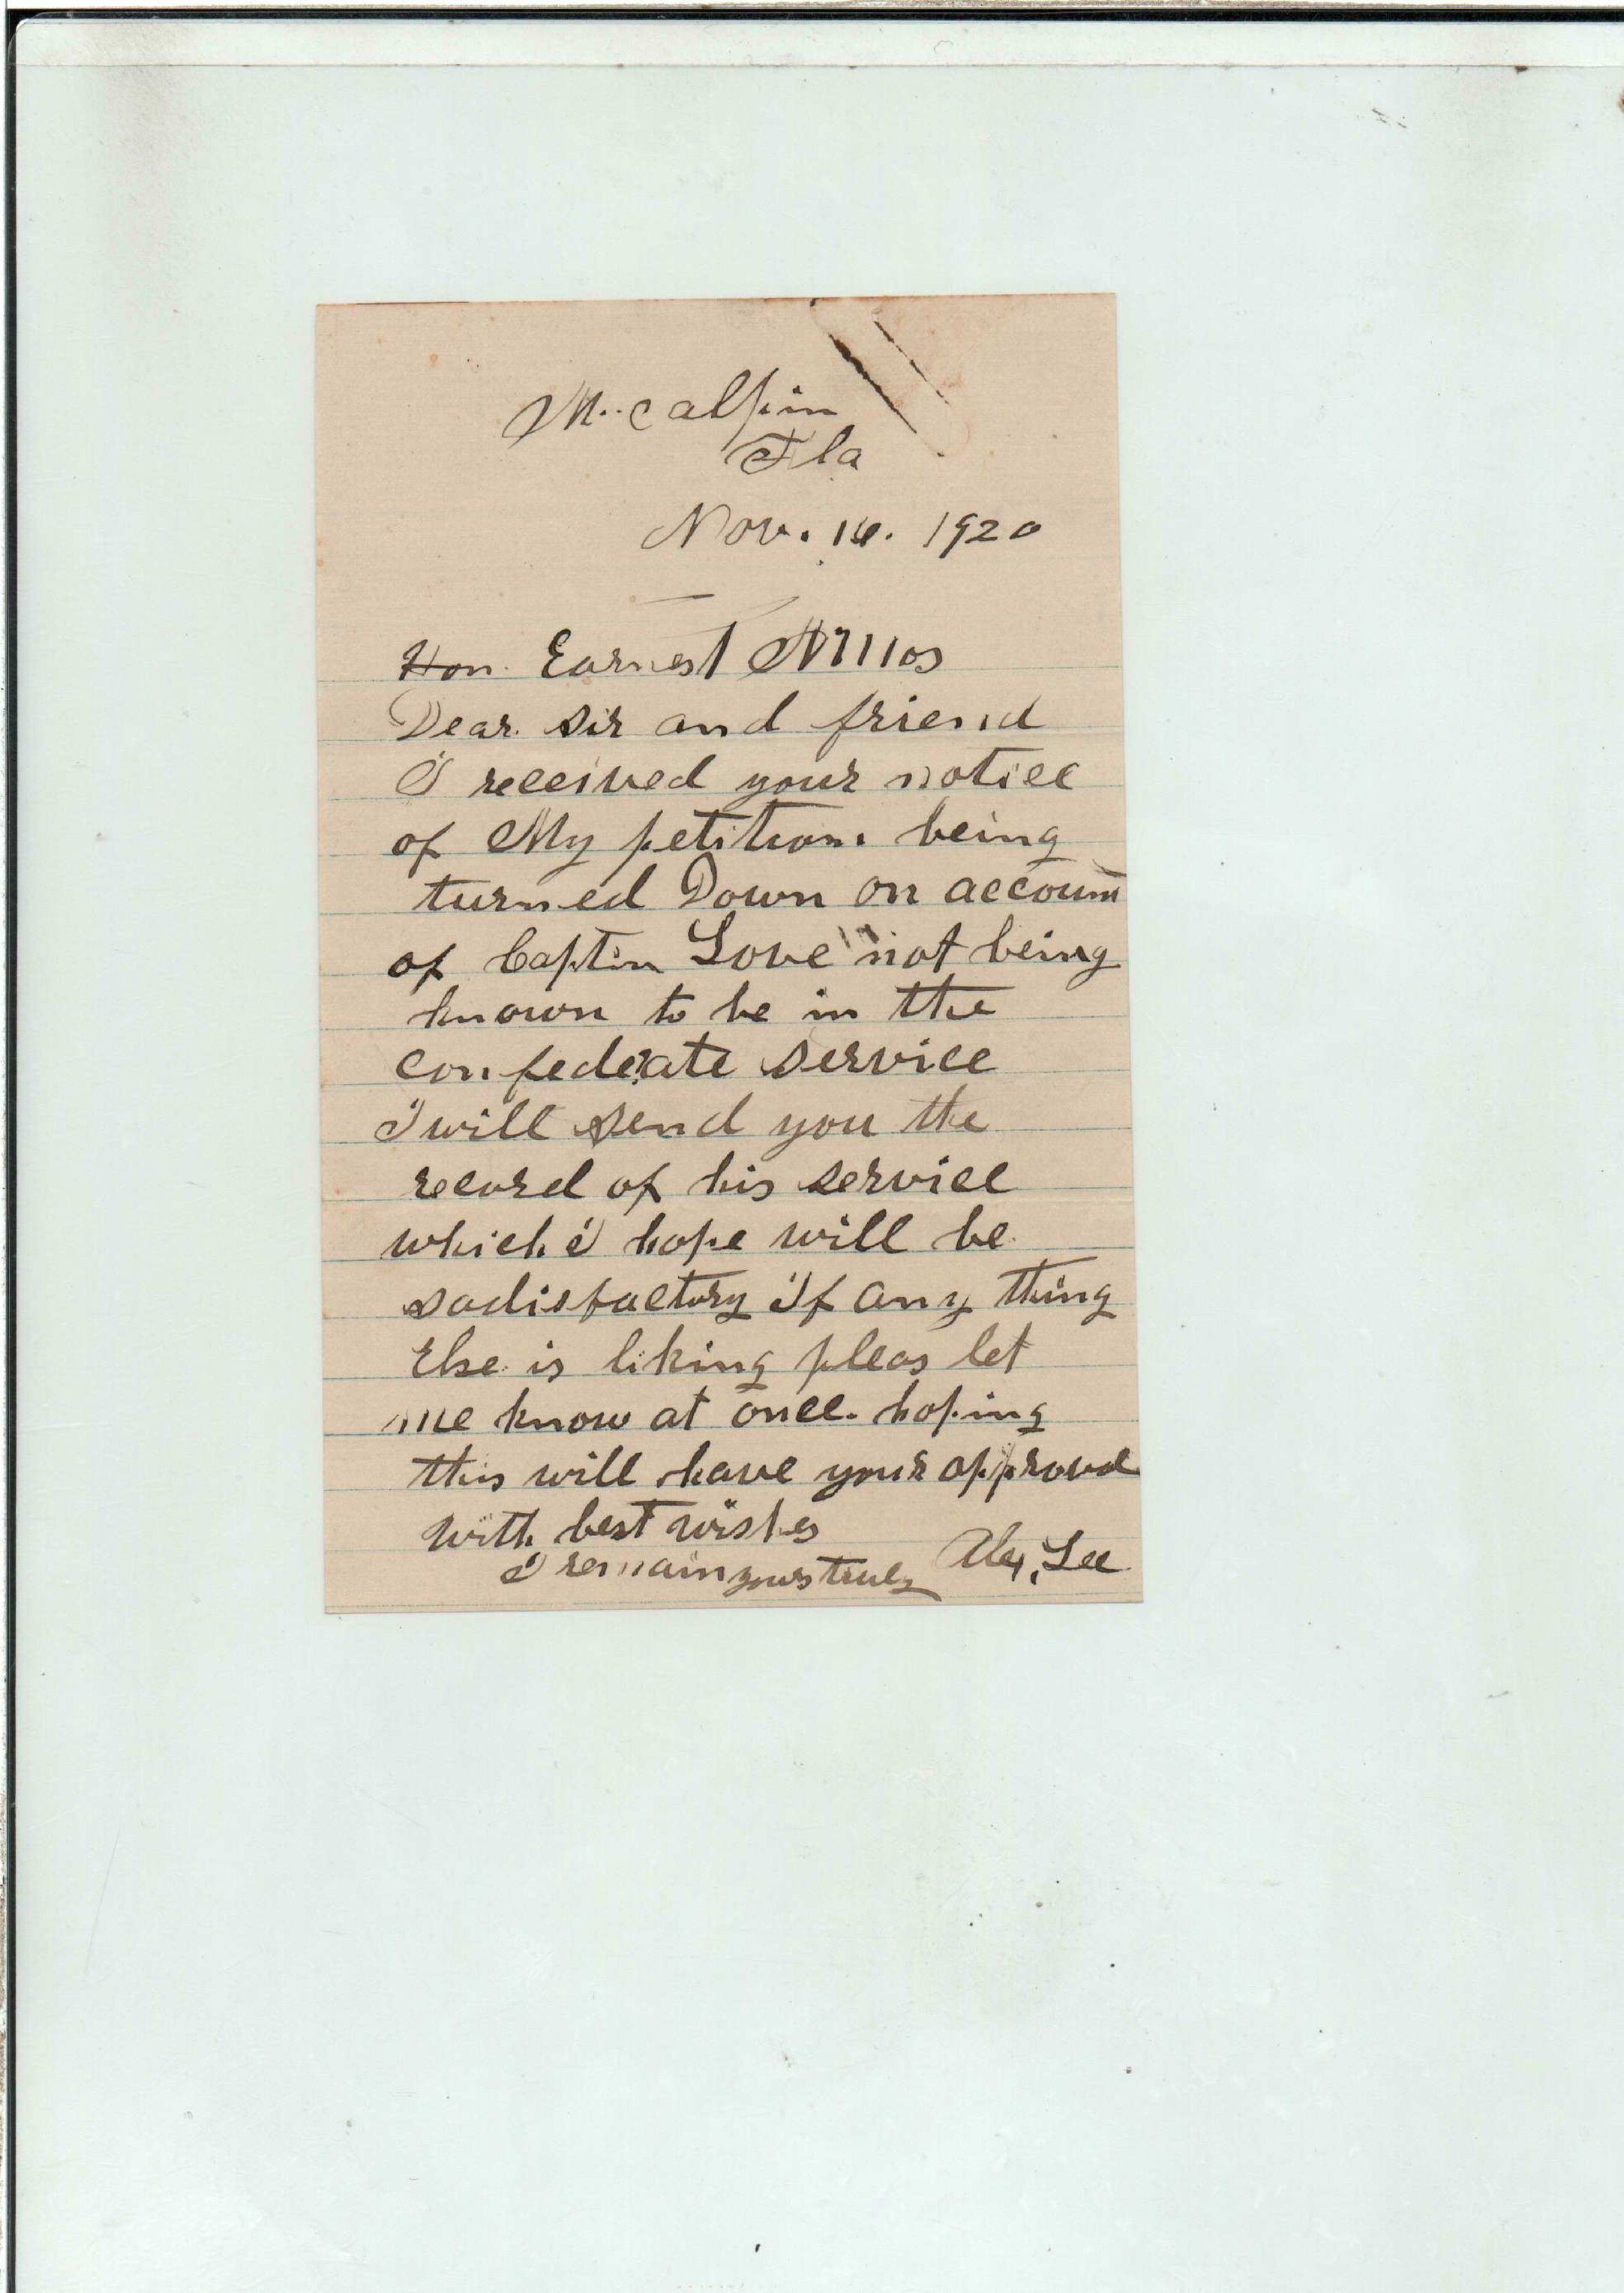 Mccalpin
Fla
Nov. 16. 1920
Hon. Earnest Amos
Dear. sir and friend
I received your notice
of My petition being
turned Down on account
of Captin Love not being
known to be in the
confederate service
I will send you the
record of his service
which I hope will be
sadisfactory If any thing
Else is liking pleas let
me know at once. hoping
this will have your approval
with best wishes
I remain yours truly Alex, Lee